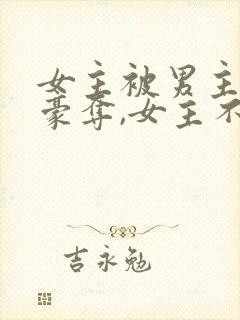 女主被男主
豪夺,女主不
吉永勉